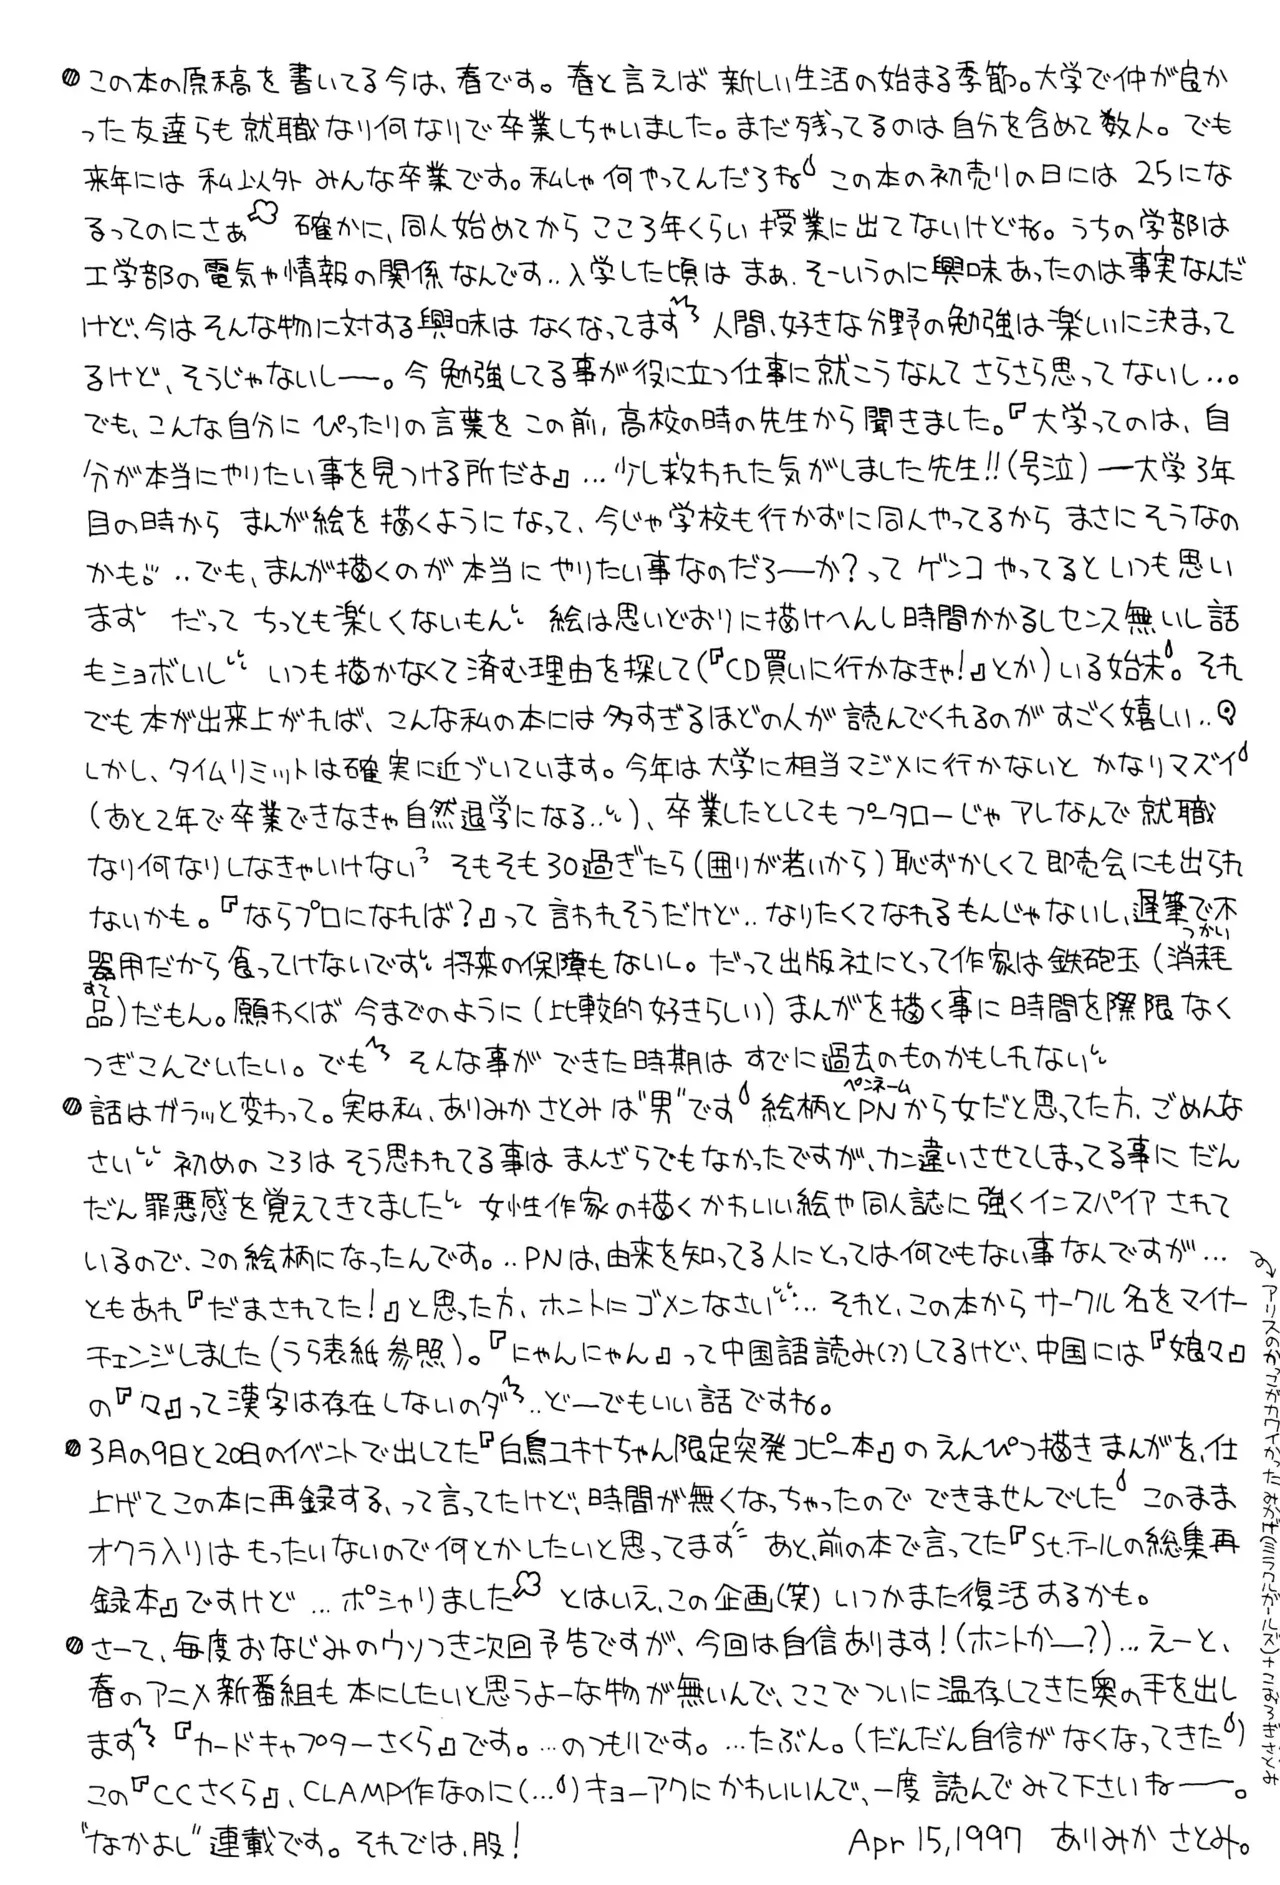 この本の原稿を書いてる今は、春です。春と言えば新しい生活の始まる季節。大学で仲が良か
った友達らも就職なり何なりで卒業しちゃいました。まだ残ってるのは自分を含めて数人。でも
来年には私以外みんな卒業です。私しゃ何やってんだろね この本の初売りの日には25にな
るってのにさぁ 確かに、同人始めてからここ3年くらい授業に出てないけどね。うちの学部は
工学部の電気や情報の関係なんです‥入学した頃はまぁ、そーいうのに興味あったのは事実なんだ
けど、今はそんな物に対する興味はなくなってます 人間、好きな分野の勉強は楽しいに決まって
るけど、そうじゃないしー。今勉強してる事が役に立つ仕事に就こうなんてさらさら思ってないし‥。
でも、こんな自分にぴったりの言葉をこの前、高校の時の先生から聞きました。『大学ってのは、自
分が本当にやりたい事を見つける所だよ』…少し救われた気がしました先生!!(号泣)ー大学3年
目の時からまんが絵を描くようになって、今じゃ学校も行かずに同人やってるからまさにそうなの
かも。‥でも、まんが描くのが本当にやりたい事なのだろーか?ってゲンコやってるといつも思い
ます だってちっとも楽しくないもん 絵は思いどおりに描けへんし時間かかるしセンス無いし話
もショボいし いつも描かなくて済む理由を探して(『CD買いに行かなきゃ!』とか)いる始末。それ
でも本が出来上がれば、こんな私の本には多すぎるほどの人が読んでくれるのがすごく嬉しい‥
しかし、タイムリミットは確実に近づいています。今年は大学に相当マジメに行かないとかなりマズイ
(あと2年で卒業できなきゃ自然退学になる‥)、卒業したとしてもプータローじゃアレなんで就職
なり何なりしなきゃいけない そもそも30過ぎたら(囲りが若いから)恥ずかしくて即売会にも出られ
ないかも。『ならプロになれば?』って言われそうだけど‥なりたくてなれるもんじゃないし、遅筆で不
器用だから食ってけないです 将来の保障もないし。だって出版社にとって作家は鉄砲玉(消耗
品)だもん。願わくば今までのように(比較的好きらしい)まんがを描く事に時間を際限なく
つぎこんでいたい。でも そんな事ができた時期はすでに過去のものかもしれない
話はガラッと変わって。実は私、ありみかさとみは"男"です 絵柄とPN(ペンネーム)から女だと思ってた方、ごめんな
さい 初めのころはそう思われてる事はまんざらでもなかったですが、カン違いさせてしまってる事にだん
だん罪悪感を覚えてきてました 女性作家の描くかわいい絵や同人誌に強くインスパイアされて
いるので、この絵柄になったんです。‥PNは、由来を知ってる人にとっては何でもない事なんですが…
ともあれ『だまされてた!』と思った方、ホントにゴメンなさい… それと、この本からサークル名をマイナー
チェンジしました(うら表紙参照)。『にゃんにゃん』って中国語読み(?)してるけど、中国には『娘々』
の『々』って漢字は存在しないのダ‥どーでもいい話ですね。
3月の9日と20日のイベントで出してた『白鳥ユキナちゃん限定突発コピー本』のえんぴつ描きまんがを、仕
上げてこの本に再録する、って言ってたけど、時間が無くなっちゃったのでできませんでした このまま
オクラ入りはもったいないので何とかしたいと思ってます あと、前の本で言ってた『St.テールの総集再
録本』ですけど…ポシャりました とはいえ、この企画(笑)いつかまた復活するかも。
さーて、毎度おなじみのウソつき次回予告ですが、今回は自信あります!(ホントかー?)…えーと、
春のアニメ新番組も本にしたいと思うよーな物が無いんで、ここでついに温存してきた奥の手を出し
ます 『カードキャプターさくら』です。…のつもりです。…たぶん。(だんだん自信がなくなってきた)
この『CCさくら』、CLAMP作なのに(…)キョーアクにかわいいんで、一度読んでみて下さいねー。
"なかよし"連載です。それでは、股!
Apr 15,1997 ありみかさとみ。
アリスのかっこがカワイかったみかげ(ミラクルガールズ)+こおろぎさとみ